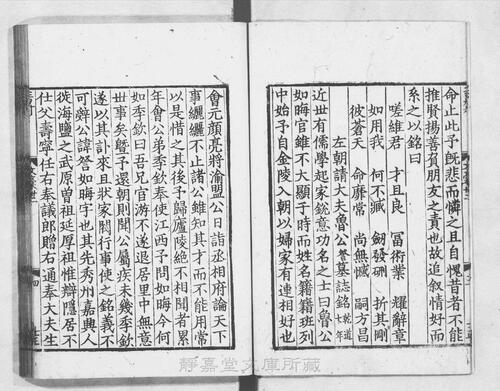 命止此予旣悲而憐之且自愧昔者不能
推賢揚善負朋友之責也故追叙情好而
系之以銘曰
嗟維君 才且良 富術業 耀辭章
如用我 何不臧 劒發硎 折其剛
彼蒼天 命靡常 尚無憾 嗣方昌
左朝請大夫魯公訔墓誌銘乾道七年
近世有儒學起家銳意功名之士曰魯公
如晦官雖不大顯于時而姓名籍籍班列
中始予自金陵入朝以婦家有連相好也
會元顏亮將渝盟公日詣丞相府論天下
事纚纚不止諸公雖知其才而不能用常
以是惜之其後予歸廬陵絶不相聞者累
年會公弟季欽奉使江西予問如晦今何
如季欽曰吾兄官游不遂退居里中無意
世事矣曁予還朝則聞公屬疾未幾季欽
遂以其訃來且狀家閥行事使之銘義不
可辭公諱訔如晦字也其先秀州嘉興人
徙海鹽之武原曾祖延厚祖惟辯隱居不
仕父壽寧任右奉議郎贈右通奉大夫生
靜嘉堂文庫所藏